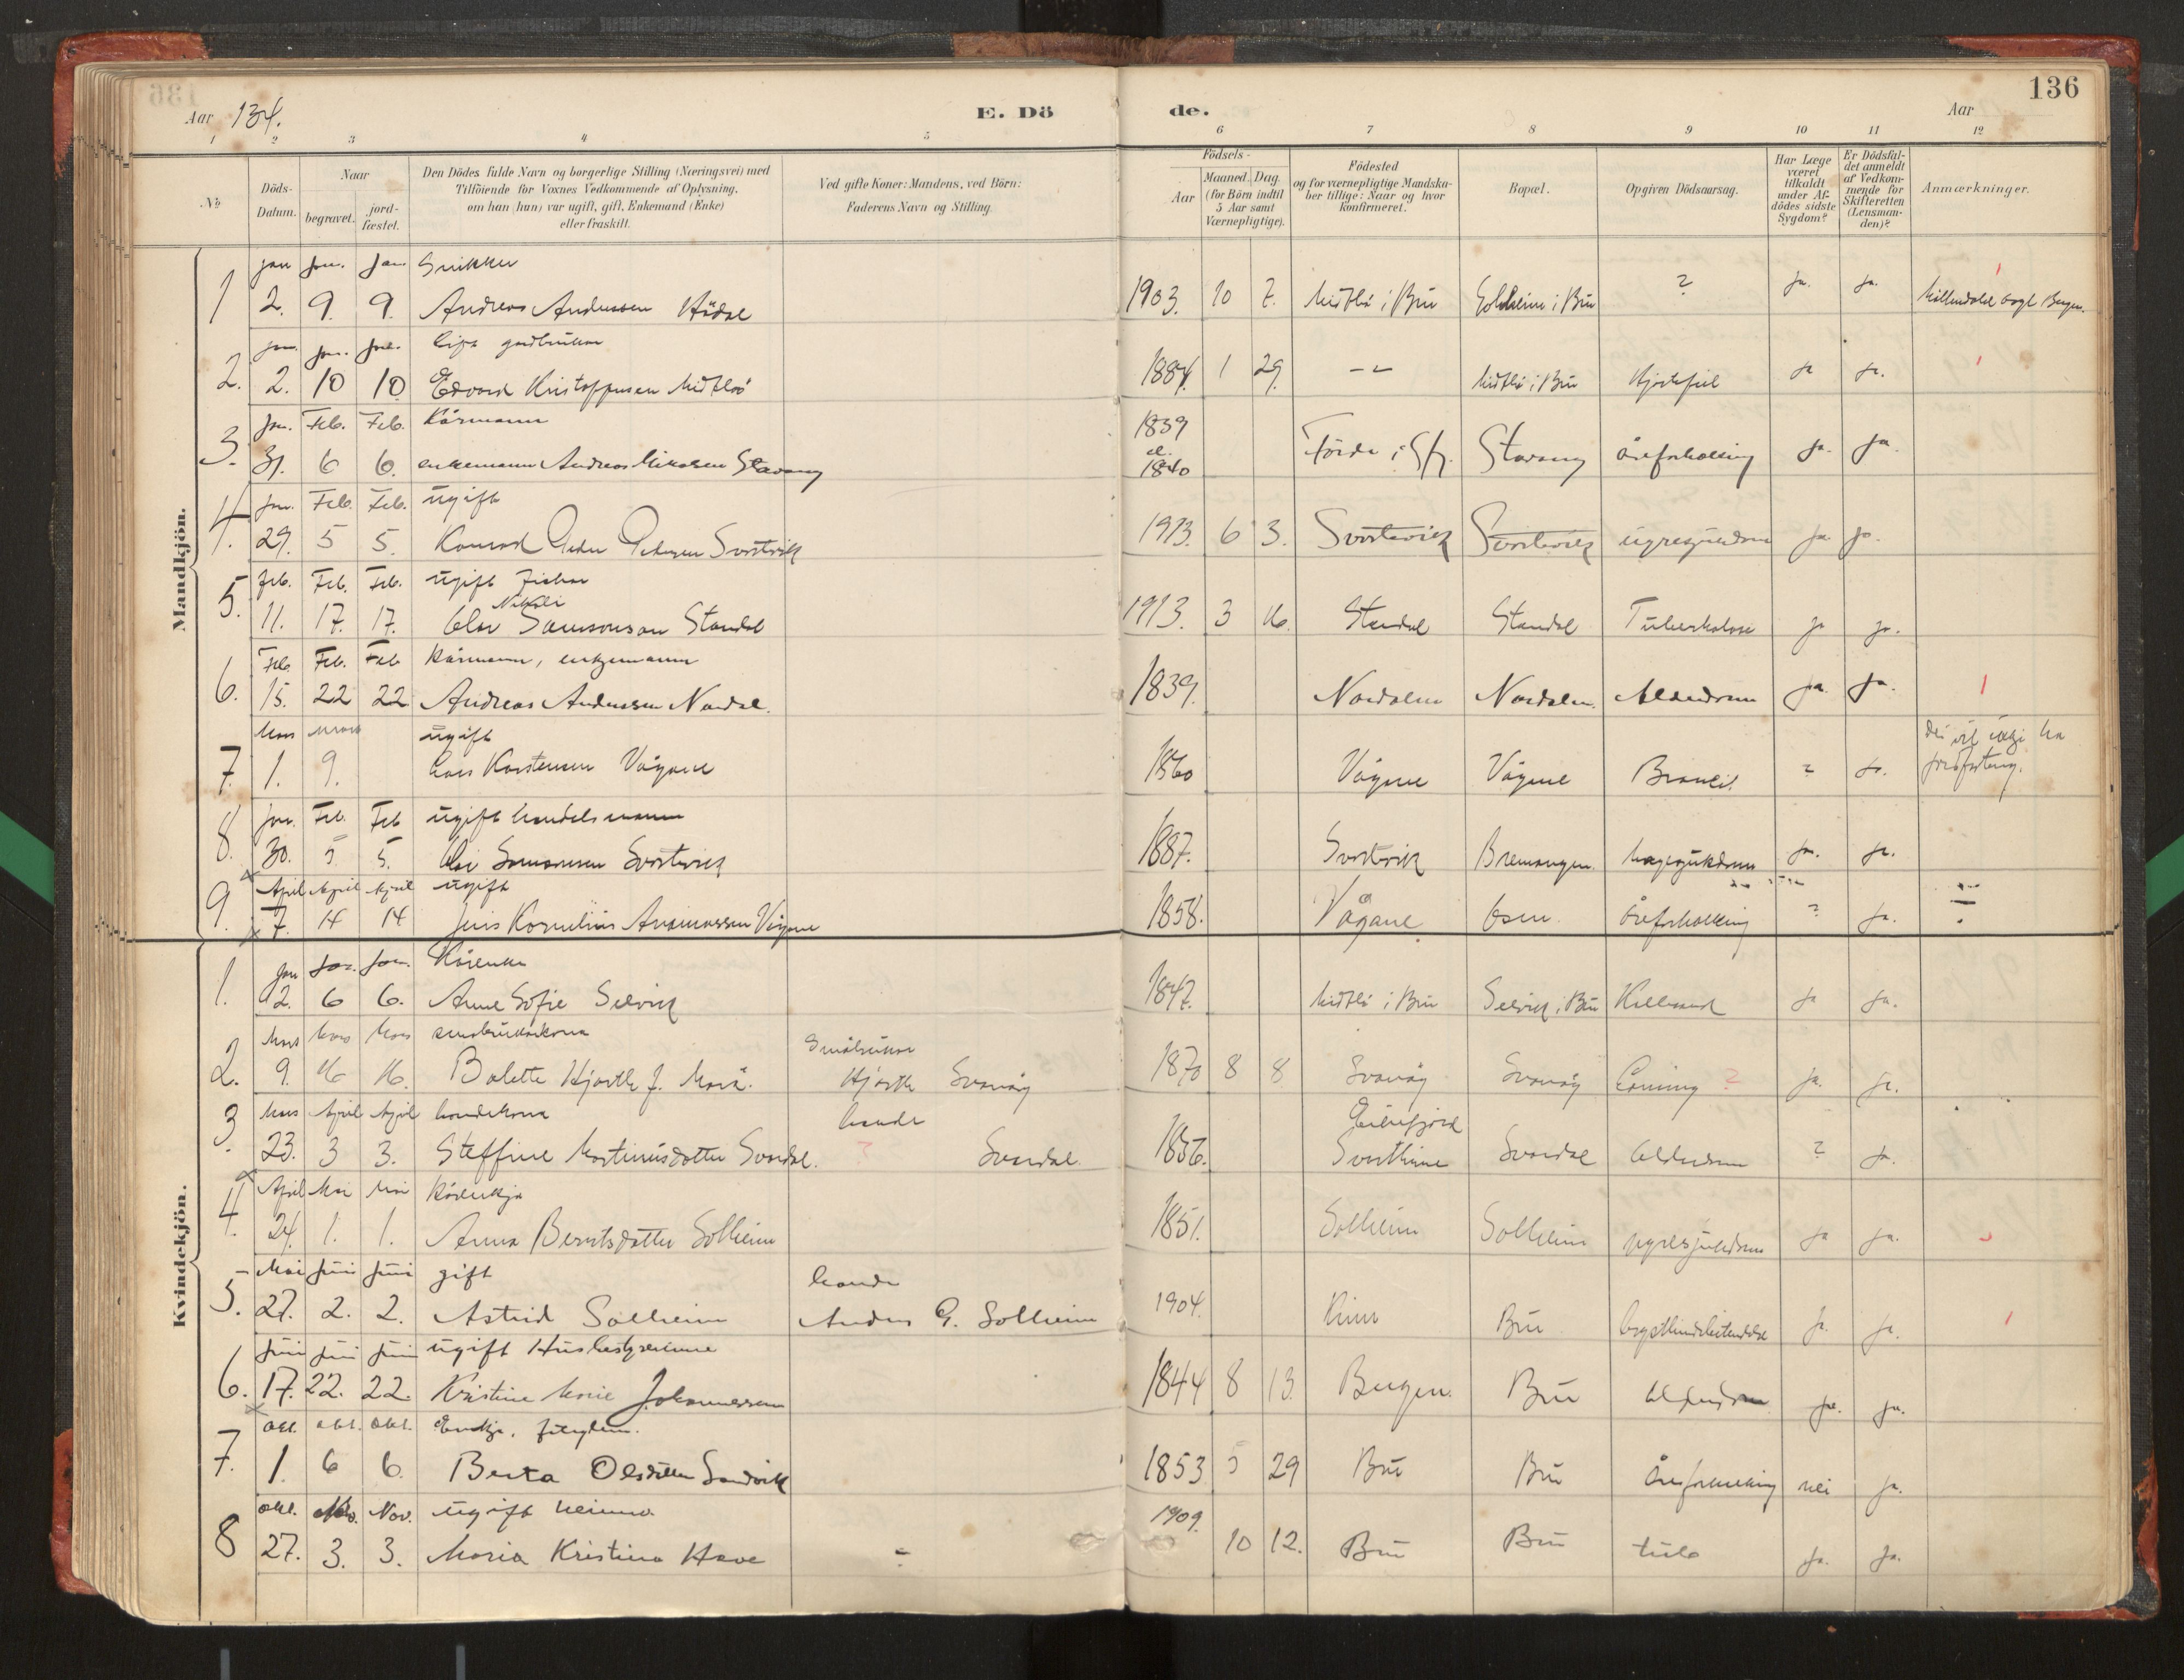 136
Aar 134. E. Dö de. Aar
1 2 3 4 5 6 7 8 9 10 11 12
№
Döds-Datum.
Naar
begravet.
jord-fæstet.
Den Dödes fulde Navn og borgerlige Stilling (Næringsvei) med
Tilföiende for Voxnes Vedkommende af Oplysning,
om han (hun) var ugift, gift, Enkemand (Enke)
eller fraskilt.
Ved gifte Koner: Mandens, ved Börn:
Faderens Navn og Stilling.
Födsels-
Aar
Maaned. Dag.
(for Börn indtil
5 Aar samt
Værnepligtige).
Födested
og for værnepligtige Mandska-
ber tillige: Naar og hvor
konfirmeret.
Bopæl.
Opgiven Dödsaarsag.
Har Læge
været
tilkaldt
under Af-
dödes sidste
Sygdom?
Er Dödsfal-
det anmeldt
af Vedkom-
mende for
Skifteretten
(Lensman-
den)?
Anmærkninger.
Mandkjön.
jan jan. jan
1 2. 9. 9. Andreas Anderssen 1903. 10 7. Midtbö i Bru Solheim i Bru ? ja. ja.
jan. jan. jan.
2. 2. 10 10 Edvard Kristoffersen Midtbö 1884. 1 29. -"- Midtbö i Bru Hjertefeil ja ja.
Jan. Feb. Feb. Kårmann 1839
3. 31. 6 6. enkemann Andreas Mikalsen Stavang el. 1840 Förde i Sfj. Stavang åreforkalking ja. ja.
Jan. Feb. Feb. ugift
4. 29. 5 5. Konrad Peder Pedersen Svortevik 1913. 6 3. Svortevik Svortevik nyresjukdom ja. ja.
Feb. Feb. Feb. ugift fisker
Nikolai
5. 11. 17. 17. Olav Samsonson Standal 1913. 3 16. Standal Standal Tuberkulose ja ja.
Feb. Feb. Feb kårmann, enkjemann
6. 15. 22 22 Andreas Anderssen Nordal. 1839. Nordalen Nordalen. Alderdom ja. ja.
Mars mars ugift
7. 1. 9. Karstensen Vågane 1860 Vågane Vågane Bronkit ? ja.
Jan. Feb. Feb ugift handelsmann
8. 30. 5. 5. Samsonsen Svortevik 1887. Svortevik Bremangen. magesjukdom ja. ja.
April April April ugift
9. 7. 14 14 Jens Kornelius Vågane 1858. Vågane Osen. åreforkalking ? ja.
Kvindekjön.
jan jan. jan. Kårenke
1. 2. 6 6. Anne Sofie Selvik 1847. Midtbö i Bru Selvik i Bru ja ja.
Mars Mars Mars småbrukarkona Småbrukar
2. 9. 16 16. Bolette Hjorth f. Hjorth Svanöy 1870 8 8 Svanöy Svanöy ? ja. ja.
Mars April April bondekona bonde Eikefjord
3 23. 3 3. Steffine Martinusdotter Svardal. ? Svardal. 1856. Svardal Alderdom ? ja.
April Mai Mai Kårenkja
4. 24. 1. 1. Anna Berntsdotter Solheim 1851. Solheim Solheim nyresjukdom ja ja.
Mai Juni Juni gift bonde
5. 27. 2. 2. Astrid Solheim Anders G. Solheim 1904. Kinn Bru brysthindebetendelse ja. ja.
Juni juni juni ugift Husbestyrerinne
6. 17. 22. 22. Kristine Marie Johannessen 1844 8 13. Bergen. Bru Alderdom ja. ja.
Okt. okt. Okt. Enkje.
7. 1. 6 6. Berta Olsdotter Sandvik 1853 5 29 Bru Bru åreforkalking nei ja.
okt. Nov. Nov. ugift heime.
8 27. 3. 3. Maria Kristina Have - 1909. 10 12. Bru Bru tub. ja. ja.